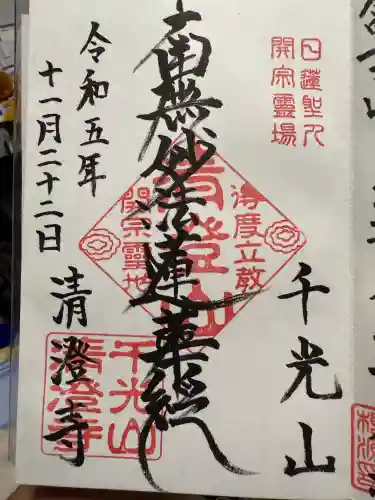 日蓮聖人
開宗靈場
千光山
南無妙法蓮華經
得度立教
清澄山
開宗靈地
令和五年
十一月二十二日
清澄寺
千光山
清澄寺